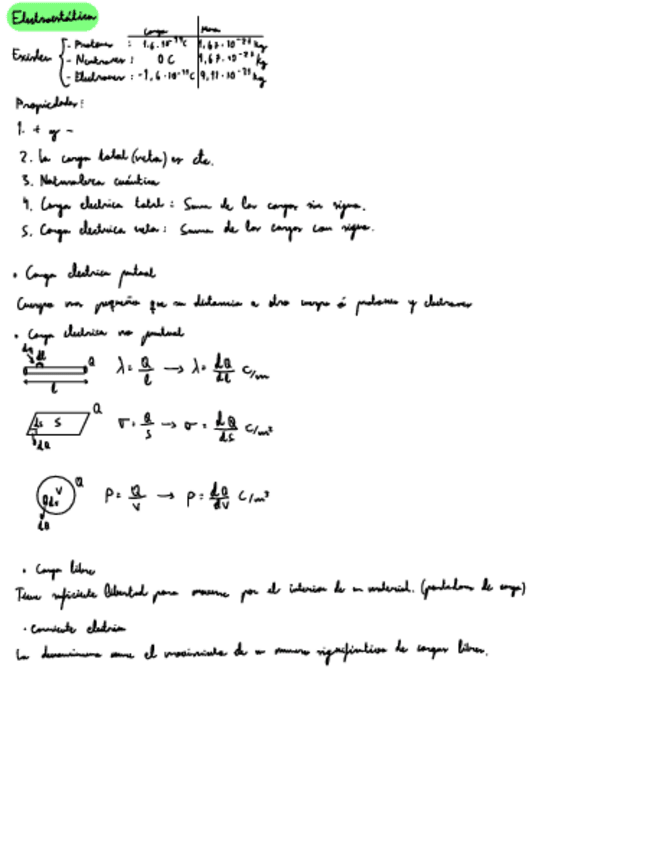 Electrostática
Carga Masa
Existen - Protones : 1,6·10⁻¹⁹C 1,67·10⁻²⁷ kg
- Neutrones : 0 C 1,67·10⁻²⁷ kg
- Electrones : -1,6·10⁻¹⁹C 9,11·10⁻³¹ kg
Propiedades:
1. + y -
2. La carga total (neta) es cte.
3. Naturaleza cuántica
4. Carga electrica total : Suma de las cargas sin signo.
5. Carga electrica neta : Suma de las cargas con signo.
• Carga electrica puntual
Cuerpo muy pequeño que su distancia a otro cuerpo ó protones y electrones
• Carga electrica no puntual
dQ dl Q λ = Q/l → λ = dQ/dl C/m
l
ds S Q σ = Q/s → σ = dQ/ds C/m²
dQ
V dv Q ρ = Q/v → ρ = dQ/dv C/m³
dQ
• Carga libre
Tiene suficiente libertad para moverse por el interior de un material. (portadores de carga)
• Corriente electrica
La denominamos el movimiento de un numero significativo de cargas libres.